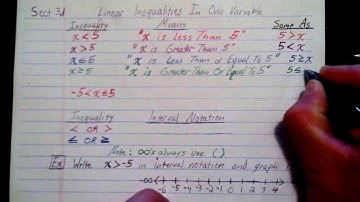 Sect 3.1 Linear Inequalities In One Variable
Inequality Means Same As
x < 5 "x is Less Than 5" 5 > x
x > 5 "x is Greater Than 5" 5 < x
x ≤ 5 "x is Less Than or Equal To 5" 5 ≥ x
x ≥ 5 "x is Greater Than Or Equal To 5" 5 ≤
-5 < x ≤ 5
Inequality Interval Notation
< OR >
≤ OR ≥
Note: ∞'s always use ( )
Ex Write x > -5 in interval notation and graph
-∞ -6 -5 -4 -3 -2 -1 0 1 2 3 4